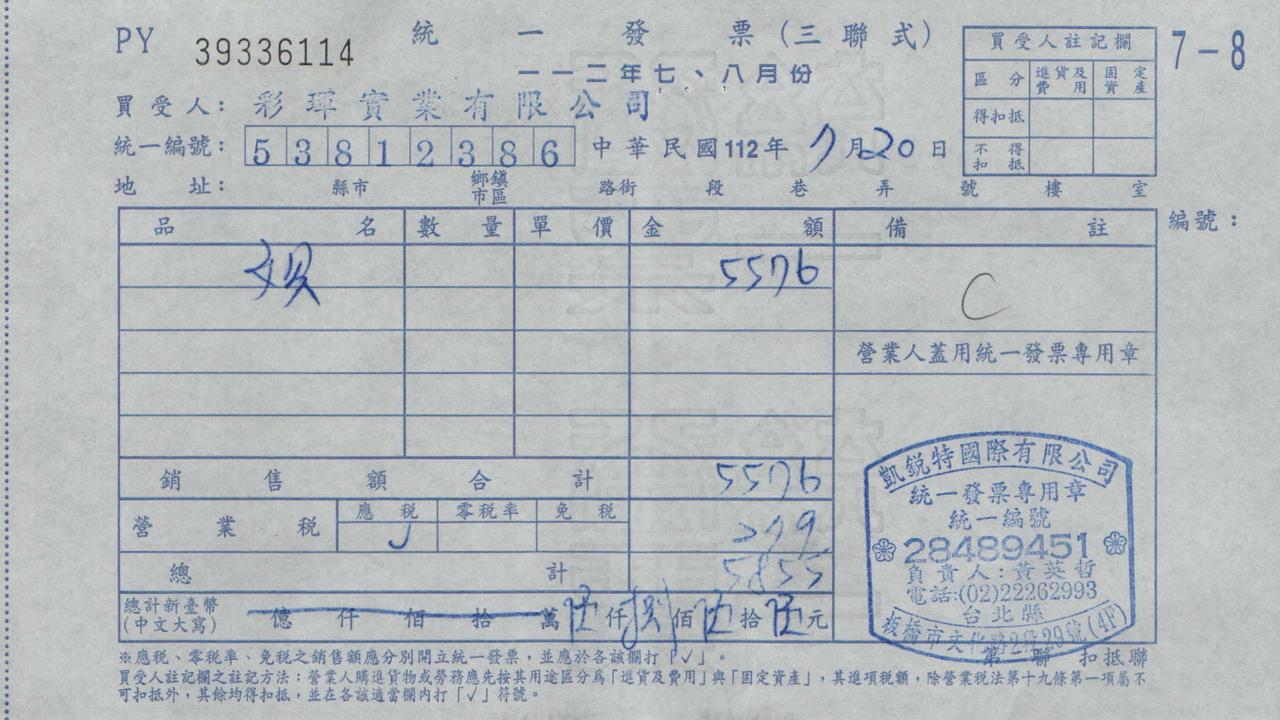 PY 39336114 統一發票(三聯式)
一一二年七、八月份
7-8
買受人註記欄
區分 進貨及費用 固定資產
得扣抵
不得扣抵
買受人: 彩琿實業有限公司
統一編號: 53812386 中華民國112年7月20日
地址: 縣市 鄉鎮市區 路街 段 巷 弄 號 樓 室
品名 數量 單價 金額 備註 編號:
5576 C
營業人蓋用統一發票專用章
銷售額合計 5576
營業稅 應稅 零稅率 免稅 279
總計 5855
總計新臺幣(中文大寫) 億仟佰拾萬伍仟捌佰伍拾伍元
凱銳特國際有限公司
統一發票專用章
統一編號
28489451
負責人:黃英哲
電話:(02)22262993
台北縣
板橋市文化路2段29號(4F)
第 聯 扣抵聯
※應稅、零稅率、免稅之銷售額應分別開立統一發票,並應於各該欄打「✓」。
買受人註記欄之註記方法:營業人購進貨物或勞務應先按其用途區分為「進貨及費用」與「固定資產」,其進項稅額,除營業稅法第十九條第一項屬不
可扣抵外,其餘均得扣抵,並在各該適當欄內打「✓」符號。